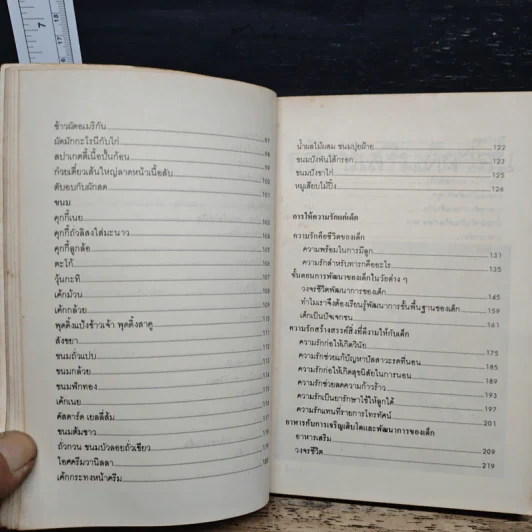 7
17
18
ข้าวผัดอเมริกัน 97
ผัดมักกะโรนีกับไก่ 98
สปาเกตตี้เนื้อปั้นก้อน 99
ก๋วยเตี๋ยวเส้นใหญ่ลาดหน้าเนื้อสับ 100
ตับอบกับผักสด 101
ขนม
คุกกี้เนย 103
คุกกี้ถั่วลิสงใส่มะนาว 104
คุกกี้ลูกล้อ 105
ตะโก้ 106
วุ้นกะทิ 107
เค้กม้วน 108
เค้กกล้วย 109
พุดดิ้งแป้งข้าวเจ้า พุดดิ้งสาคู 110
สังขยา 111
ขนมถั่วแปบ 112
ขนมกล้วย 113
ขนมฟักทอง 114
เค้กเนย 115
คัสตาร์ด เยลลี่ส้ม 117
ขนมต้มขาว 118
ถั่วกวน ขนมบัวลอยถั่วเขียว 119
ไอศครีมวานิลลา 120
เค้กกระทงหน้าครีม
น้ำผลไม้ผสม ขนมปุยฝ้าย 122
ขนมปังพันไส้กรอก 123
ขนมปังขาไก่ 125
หมูเสียบไม้ปิ้ง 126
การให้ความรักแก่เด็ก
ความรักคือชีวิตของเด็ก
ความพร้อมในการมีลูก 131
ความรักสำหรับทารกคืออะไร 135
ขั้นตอนการพัฒนาของเด็กในวัยต่าง ๆ
วงจรชีวิตพัฒนาการของเด็ก 145
ทำไมเราจึงต้องเรียนรู้พัฒนาการขั้นพื้นฐานของเด็ก 159
เด็กเป็นปัจเจกชน 161
ความรักสร้างสรรค์สิ่งที่ดีงามให้กับเด็ก
ความรักก่อให้เกิดวินัย 175
ความรักช่วยแก้ปัญหาปัสสาวะรดที่นอน 185
ความรักก่อให้เกิดสุขนิสัยในการนอน 189
ความรักช่วยลดความก้าวร้าว 193
ความรักเป็นยารักษาใช้ให้ลูกได้ 197
ความรักแทนที่รายการโทรทัศน์ 201
อาหารกับการเจริญเติบโตและพัฒนาการของเด็ก
อาหารเสริม 209
วงจรชีวิต 219